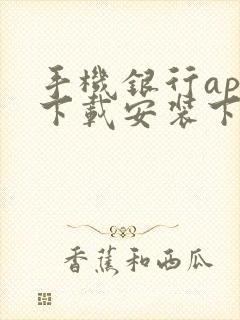 手機銀行ap
下載安裝下
香蕉和西瓜